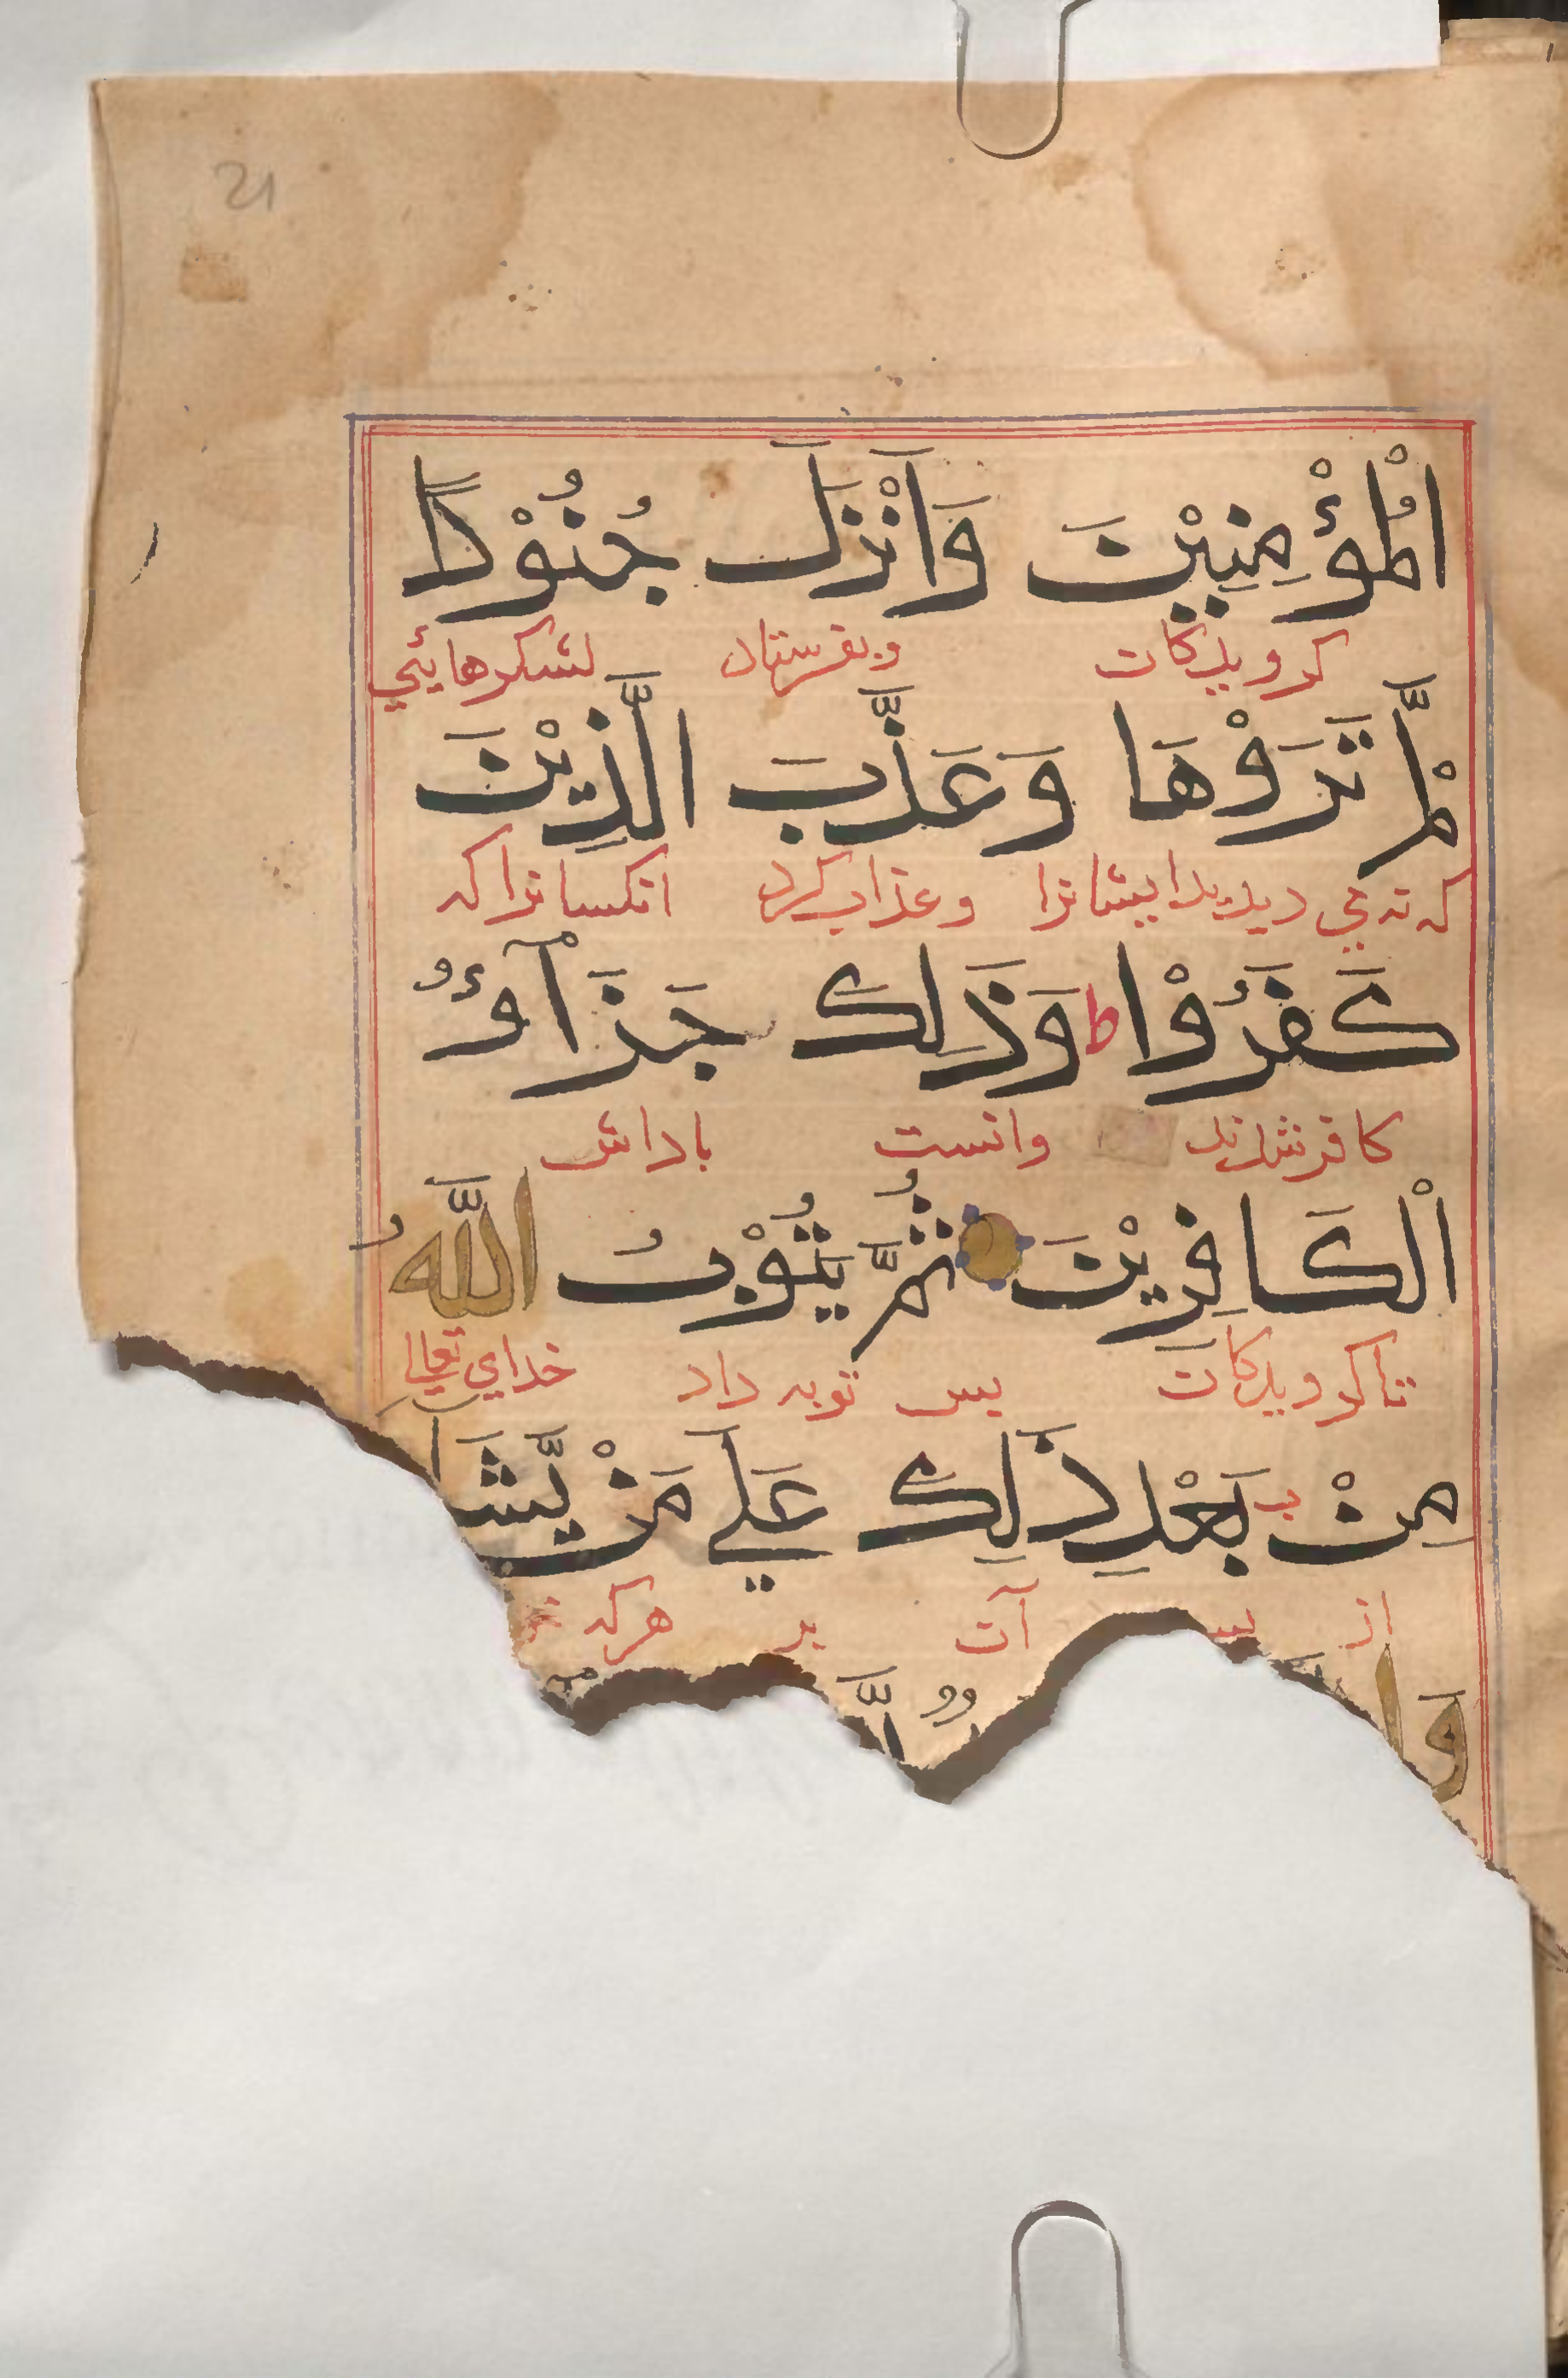 21
اْلمُؤْمِنِيْنَ وَاَنْزَلَ جُنُوْدًا
كرويدكان وبفرستاد لشكرهايئي
لَّمْ تَرَوْهَا وَعَذَّبَ الَّذِيْنَ
كه نه مي ديديد ايشانرا وعذاب كرد انكسانرا كه
كَفَرُوْا ط وَذَلِكَ جَزَآءُ
كافر شدند وانست باداش
اْلكَافِرِيْنَ ثُمَّ يَتُوْبُ اللَّهُ
ناكرويدكان پس توبه داد خداي تعالى
مِنْ بَعْدِ ذَلِكَ عَلَي مَنْ يَّشَا
از پس آن بر هركه